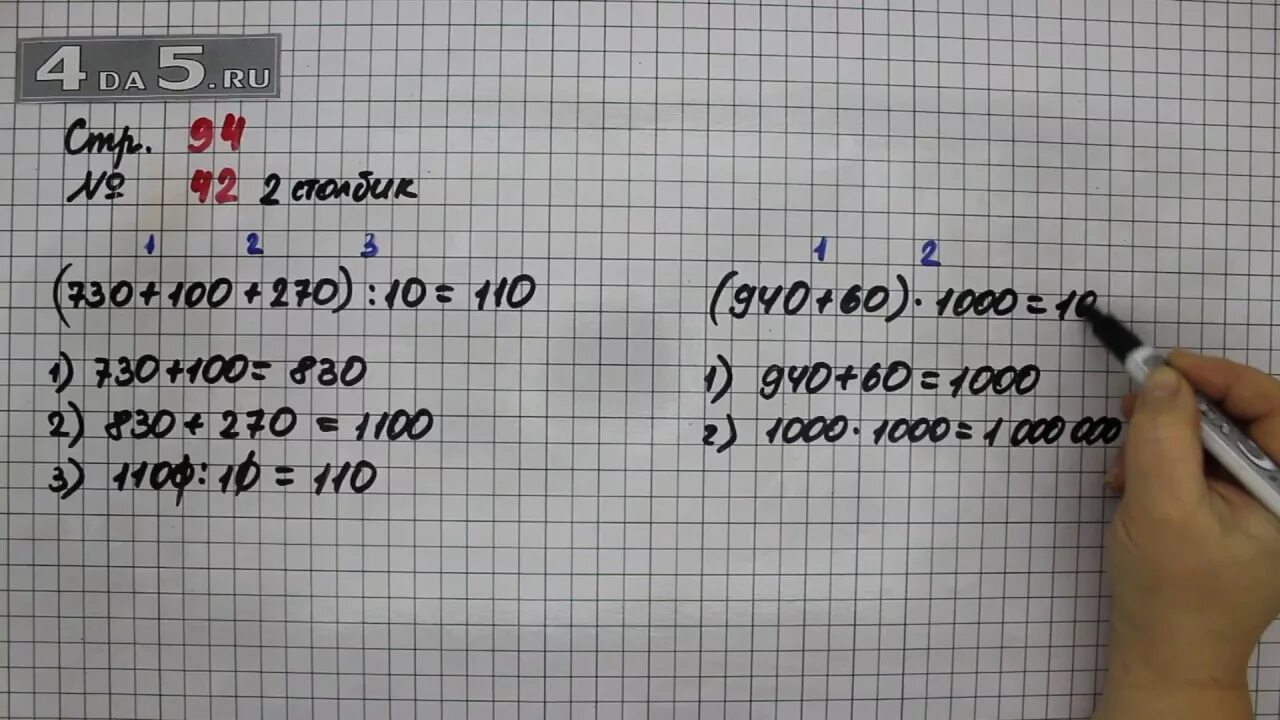 4 DA 5.RU
Стр. 94
№ 42 2 столбик
1 2 3
(730+100+270):10=110
1) 730+100=830
2) 830+270=1100
3) 1100:10=110
1 2
(940+60)·1000=10
1) 940+60=1000
2) 1000·1000=1 000 000